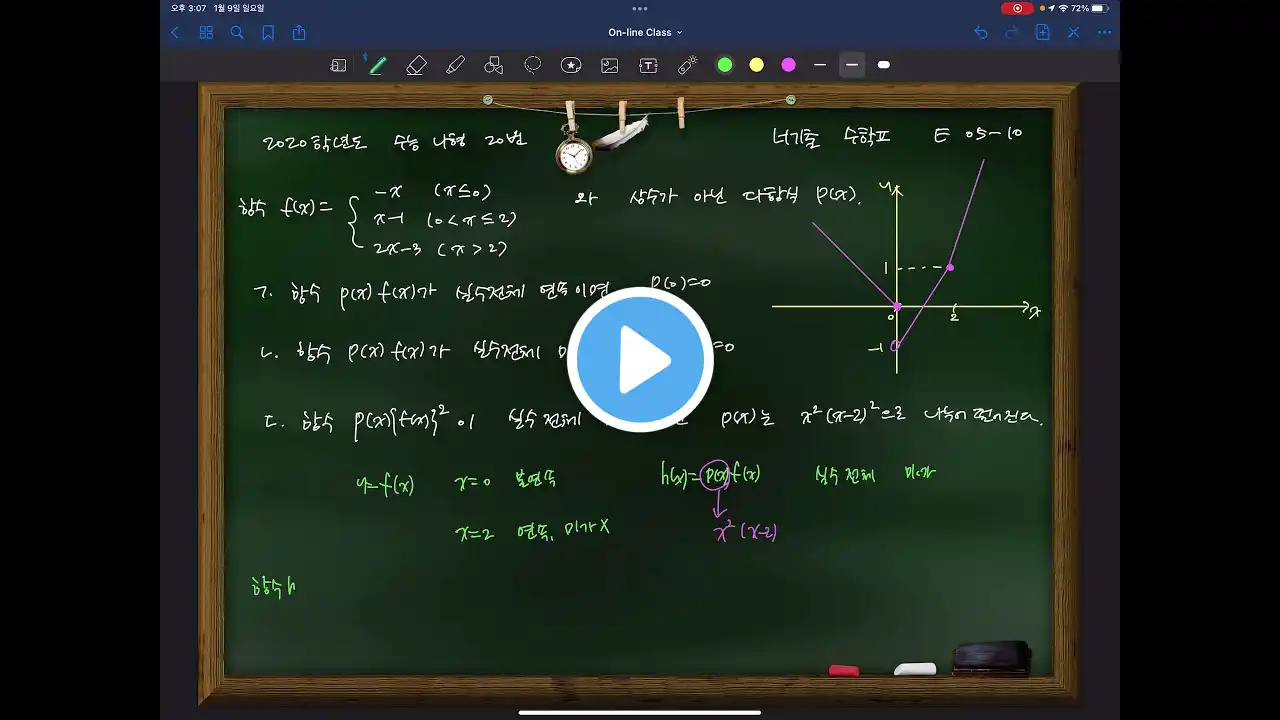 오후 3:07 1월 9일 일요일
72%
On-line Class
2020학년도 수능 나형 20번
너기출 수학II E 05-10
함수 f(x)= { -x (x≤0)
x-1 (0<x≤2)
2x-3 (x>2)
와 상수가 아닌 다항식 p(x).
ㄱ. 함수 p(x)f(x)가 실수전체 연속이면 p(0)=0
ㄴ. 함수 p(x)f(x)가 실수전체 =0
ㄷ. 함수 p(x){f(x)}² 이 실수전체 p(x)는 x²(x-2)²으로 나누어 떨어진다.
y
1
0
2
x
-1
y=f(x) x=0 불연속
h(x)=p(x)f(x) 실수전체 미가
x=2 연속, 미가X
x²(x-2)
함수h